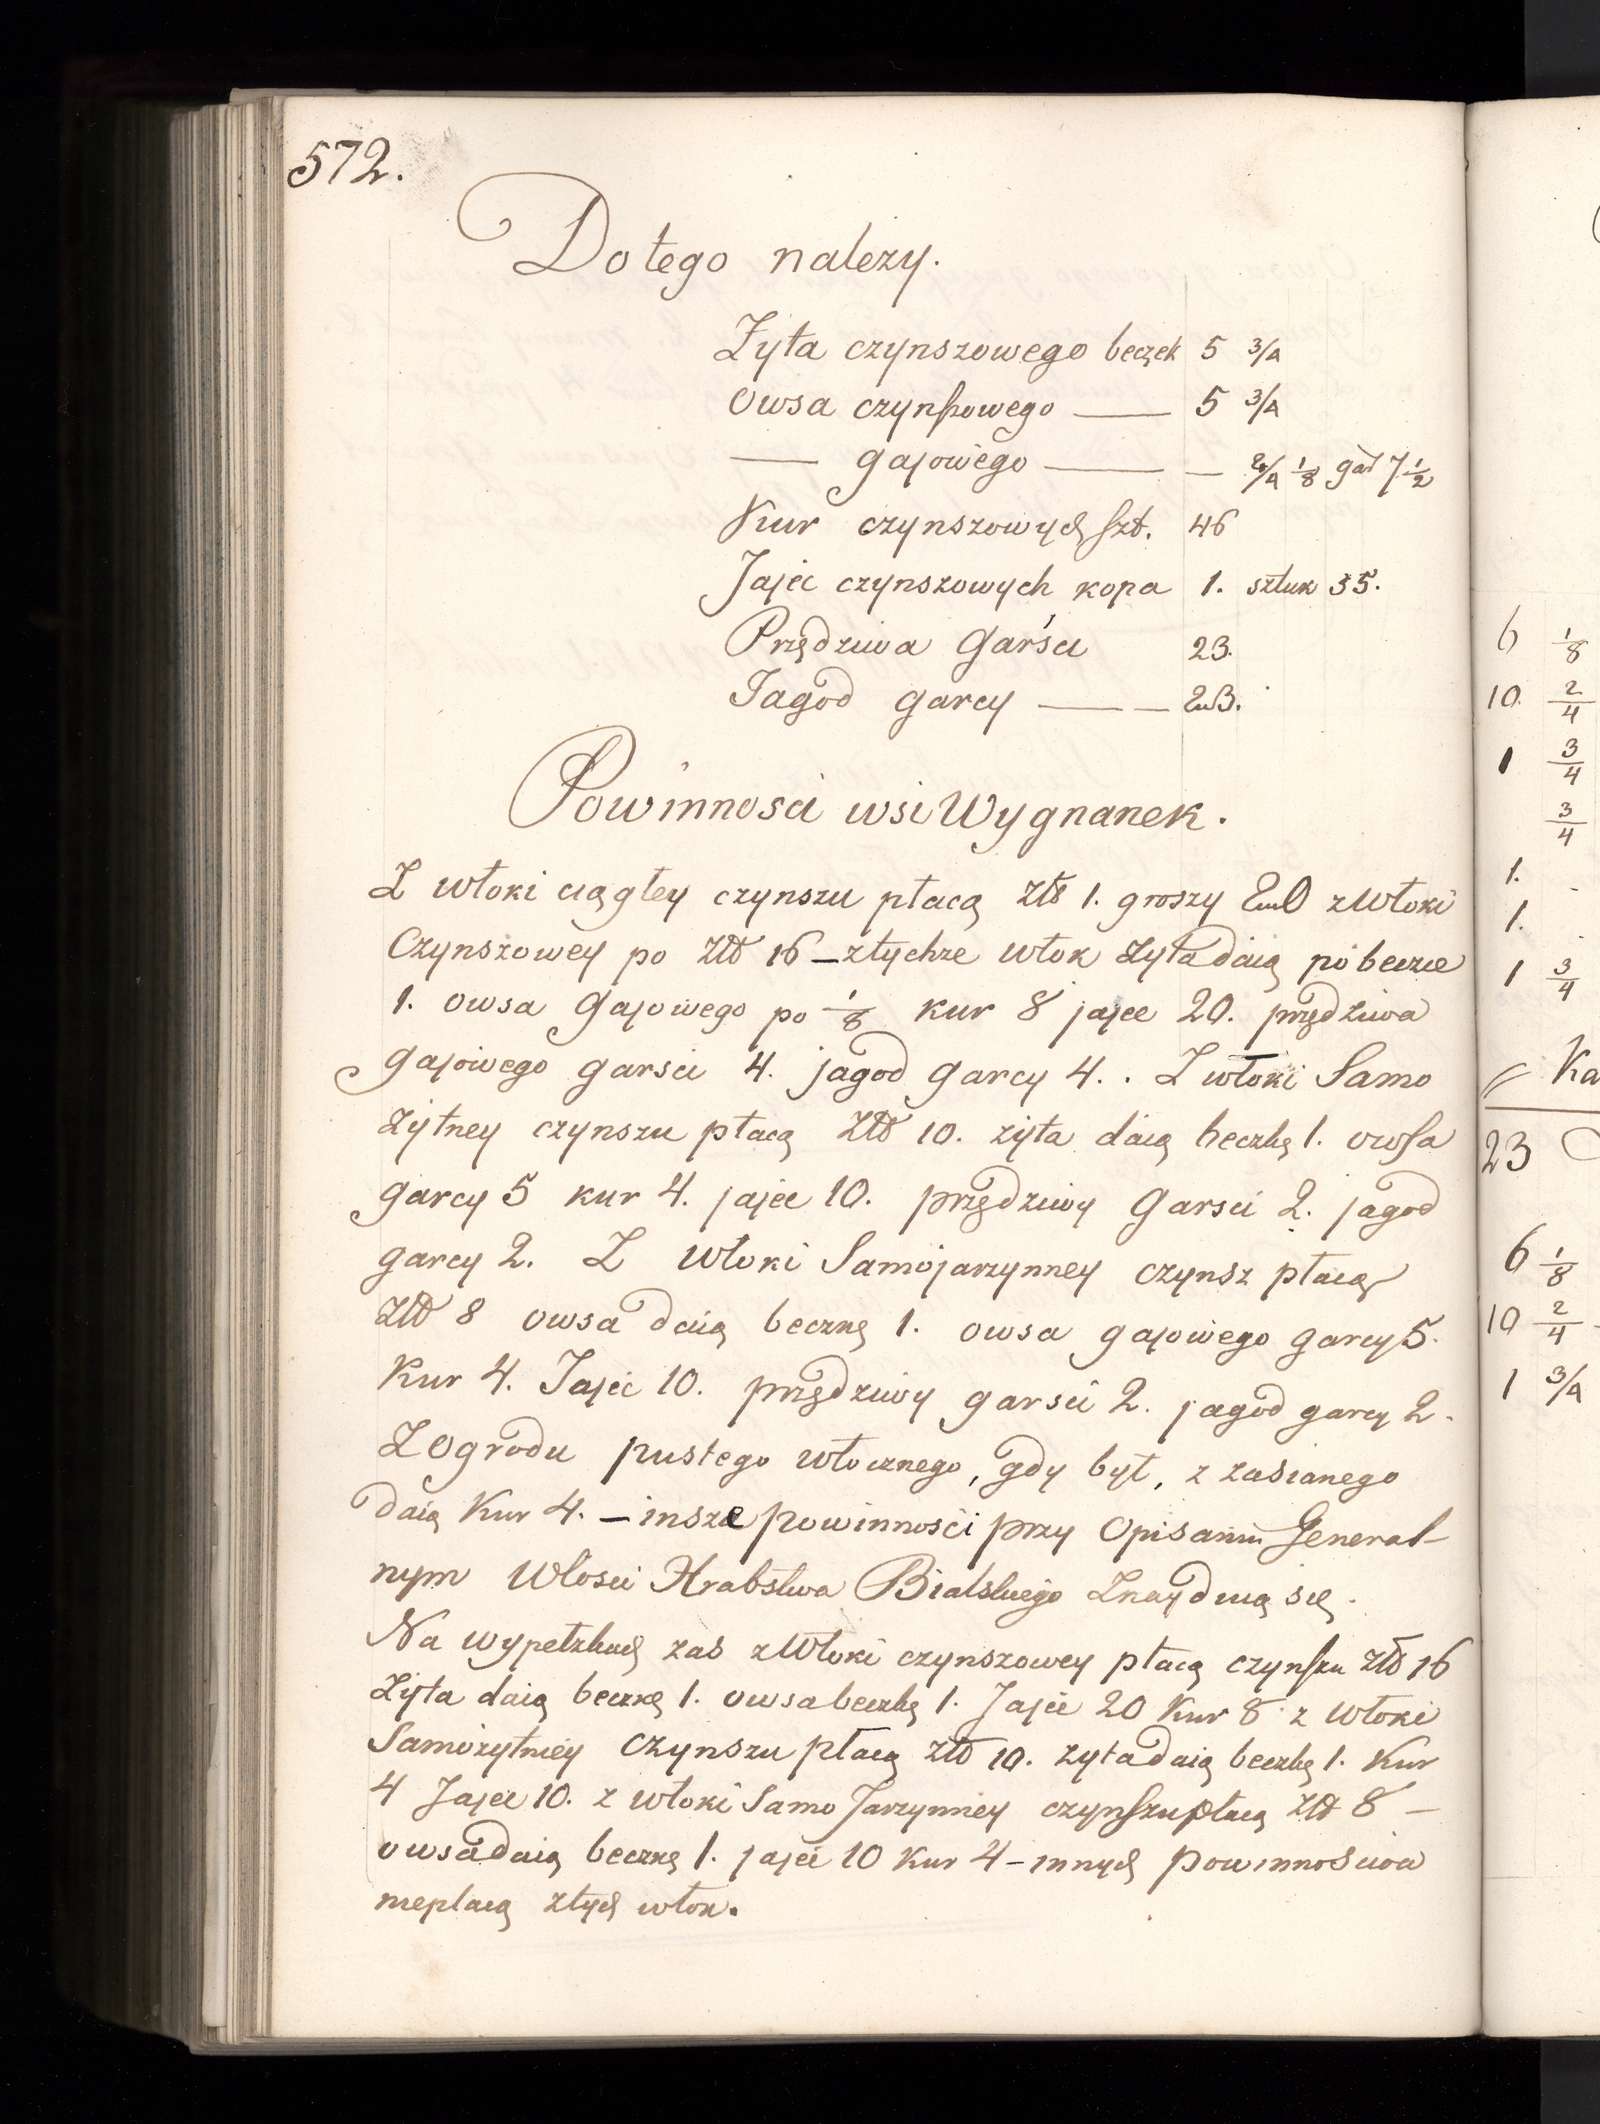 572.
Do tego nalezy.
Żyta czynszowego beczek 5 3/4
Owsa czynszowego — 5 3/4
— gajowego — — 2/4 1/8 gar 7 1/2
Kur czynszowych szt. 46
Jajec czynszowych kopa 1. sztuk 35.
Przędziwa Garści 23.
Jagod garcy — — 23.
Powinnosci wsi Wygnanek.
Z włoki ciągłey czynszu płacą Złł 1. groszy 20 z Włoki
Czynszowey po Złł 16 – z tychże włok żyta daią po beczce
1. owsa Gajowego po 1/8 kur 8 jajec 20. przędziwa
gajowego garsci 4. jagod garcy 4. . Z włoki Samo
żytney czynszu płacą Złł 10. żyta daią beczkę 1. owsa
garcy 5 kur 4. jajec 10. przędziwy Garsci 2. jagod
garcy 2. Z Włoki Samojarzynney czynsz płacą
Złł 8 owsa daią beczkę 1. owsa gajowego garcy 5.
Kur 4. Jajec 10. przędziwy garsci 2. jagod garcy 2.
Z Ogrodu pustego włocznego, gdy był, z zasianego
daią Kur 4. – insze powinności przy Opisaniu General-
nym Włosci Hrabstwa Bialskiego Znaydują się.
Na wypełzkach zas z Włoki czynszowey płacą czynszu Złł 16
Żyta daią beczkę 1. owsa beczkę 1. Jajec 20 Kur 8 z Włoki
Samożytniey Czynszu płacą Złł 10. żyta daią beczkę 1. Kur
4 Jajec 10. z włoki Samo Jarzynniey czynszu płacą Złł 8 –
owsa daią beczkę 1. jajec 10 Kur 4 – innych powinnosciow
nieplacą z tych włok.
6 1/8
10 2/4
1 3/4
3/4
1.
1.
1 3/4
Ka
23
6 1/8
10 2/4
1 3/4